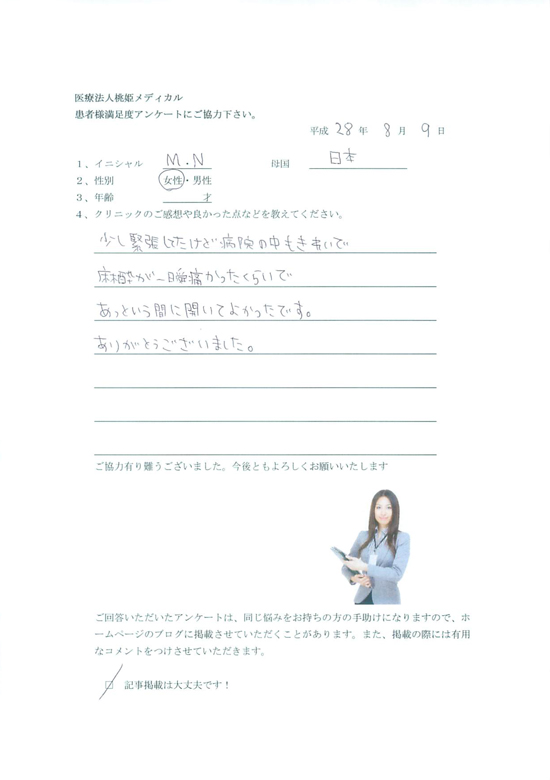 医療法人桃姫メディカル
患者様満足度アンケートにご協力下さい。
平成 28 年 8 月 9 日
1、イニシャル M.N 母国 日本
2、性別 女性・男性
3、年齢 才
4、クリニックのご感想や良かった点などを教えてください。
少し緊張してたけど病院の中もきれいで
麻酔が一瞬痛かったくらいで
あっという間に開いてよかったです。
ありがとうございました。
ご協力有り難うございました。今後ともよろしくお願いいたします
ご回答いただいたアンケートは、同じ悩みをお持ちの方の手助けになりますので、ホ
ームページのブログに掲載させていただくことがあります。また、掲載の際には有用
なコメントをつけさせていただきます。
□ 記事掲載は大丈夫です！